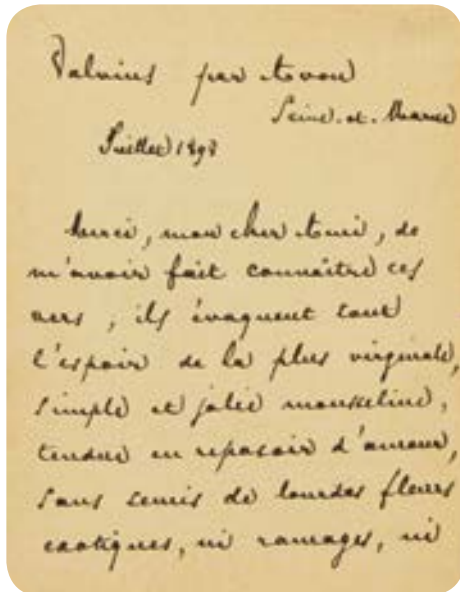 Valvins par Avon
Seine-et-Marne
Juillet
Merci, mon cher Ami, de
m'avoir fait connaître ces
vers ; ils évoquent tout
l'espoir de la plus virginale,
simple et jolie mousseline,
tendue en reposoir d'amour,
sans semis de lourdes fleurs
exotiques, ni ramages, ni